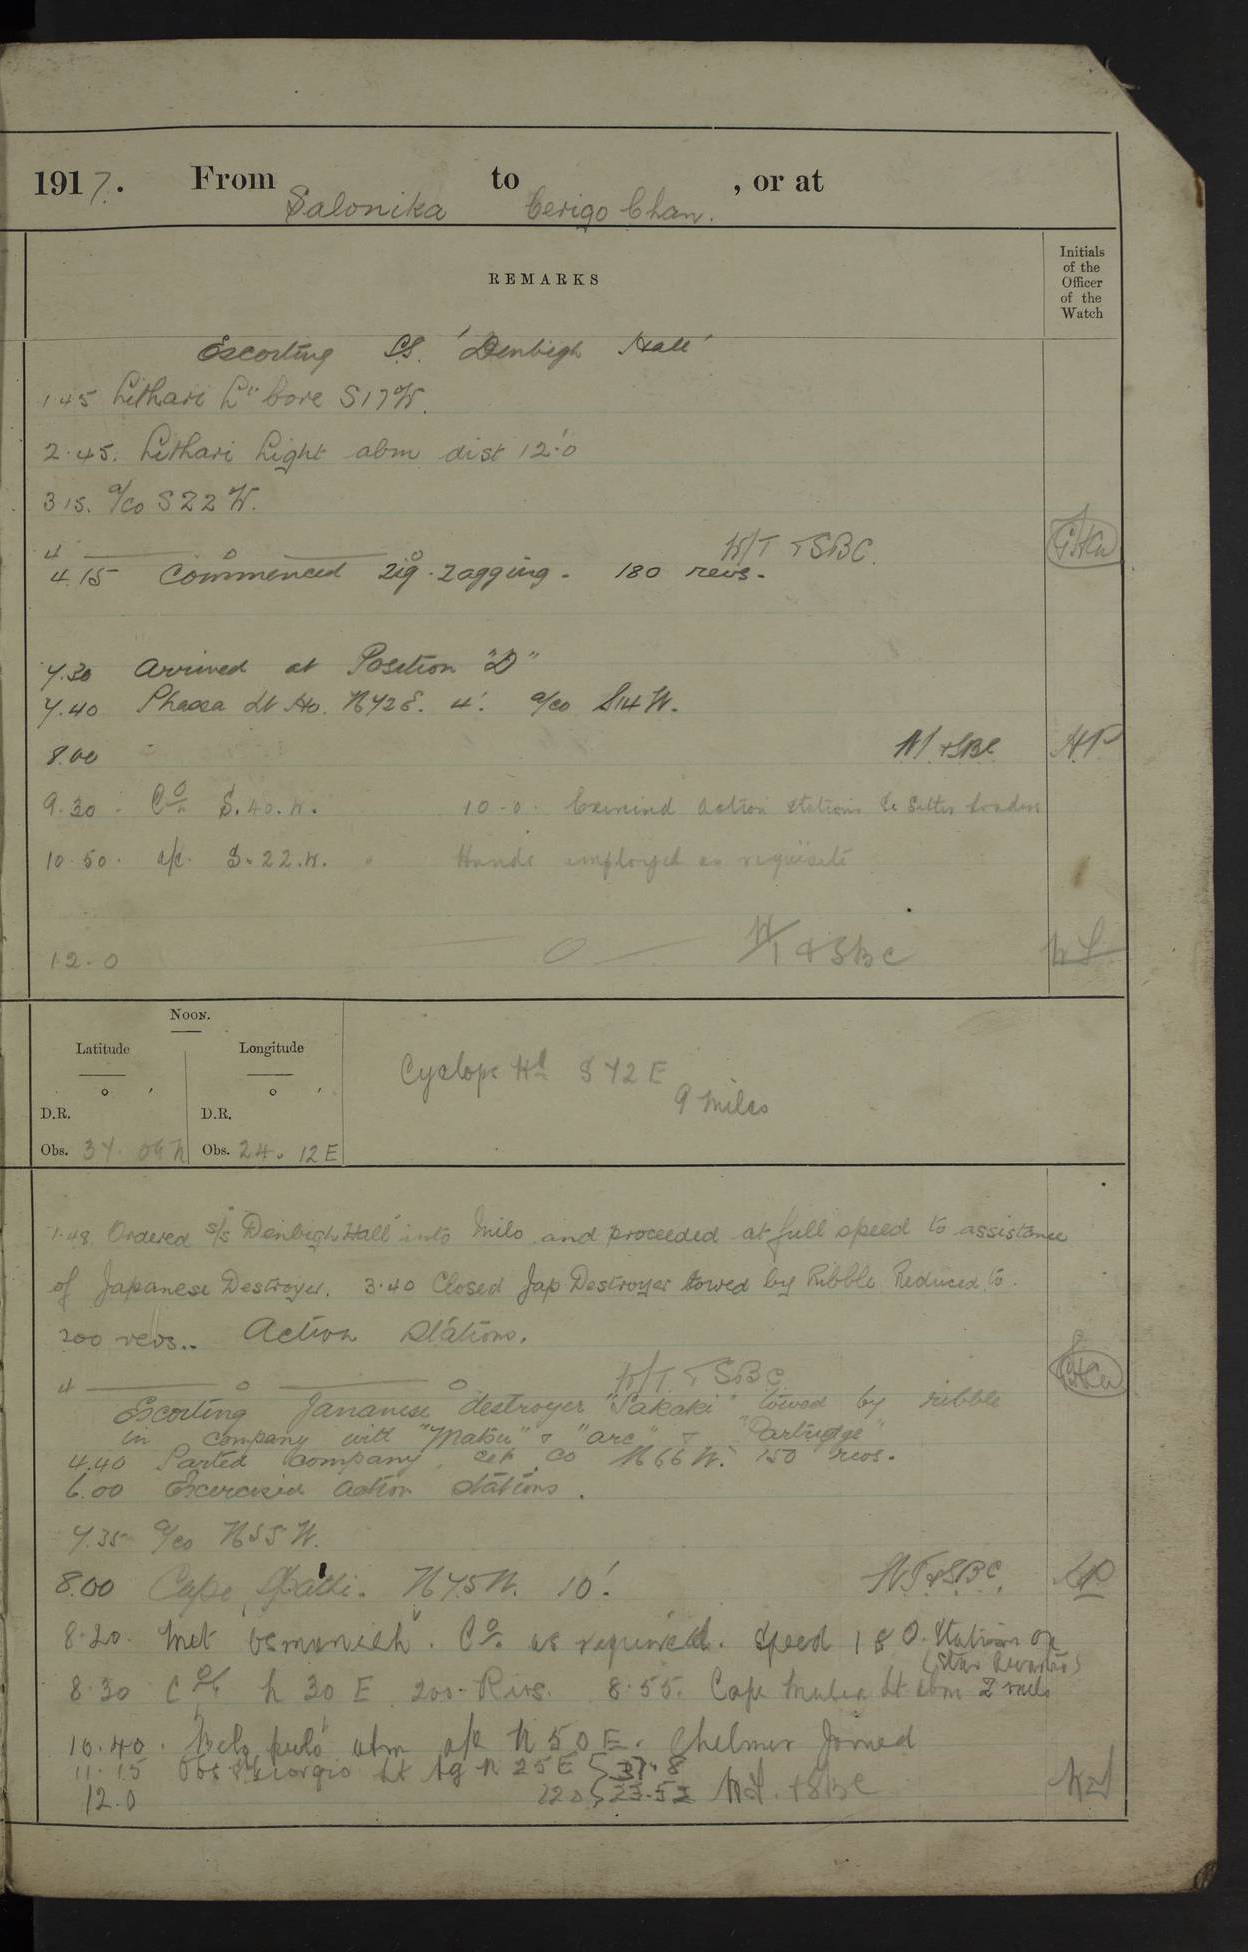 1917. From Salonika to Cerigo Chan. , or at
REMARKS
Initials of the Officer of the Watch
Escorting SS. 'Denbigh Hall'
1.45 Lithari Lt bore S17W.
2.45. Lithari Light abm dist 12'.0
3 15. a/co S22W.
4 W/T & SBC.
4.15 Commenced zig-zagging. 180 revs.
7.30 Arrived at Position "D"
7.40 Lt Ho. N72E. 4'. a/co S14W.
8.00 & SBC HP
9.30. Co S.40.W. 10-0. action stations
10.50. a/c. S.22.W. Hands employed as requisite
12.0 W/T & SBC
Noon.
Latitude Longitude
° ' ° '
D.R. D.R.
Obs. 37. 09 N Obs. 24. 12 E
Cyclops Hd S 72 E
9 miles
1.48. Ordered s/s "Denbigh Hall" into Milo and proceeded at full speed to assistance
of Japanese Destroyer. 3.40 Closed Jap Destroyer towed by Ribble Reduced to
200 revs.. Action Stations.
4 W/T. & SBC
Escorting Jananese destroyer "Sakaki" towed by ribble
in company with "Matsu" & "arc" & "Partridge"
4.40 Parted company, set co N66W. 150 revs.
6.00 Exercised action stations.
7.35 a/co N55W.
8.00 Cape Spathi. N75W. 10'. WT & SBC.
8.20. Met Osmanieh. Co. as required. Speed 180. Station on
8.30 Co N 30 E 200 Revs. 8.55. Cape Malea Lt abm 2 mls
10.40. Belo pulo abm a/c N 50 E. Chelmer Joined
11.15 Obs Lt N 25 E 37.8
12.0 120 23.52 & SBC